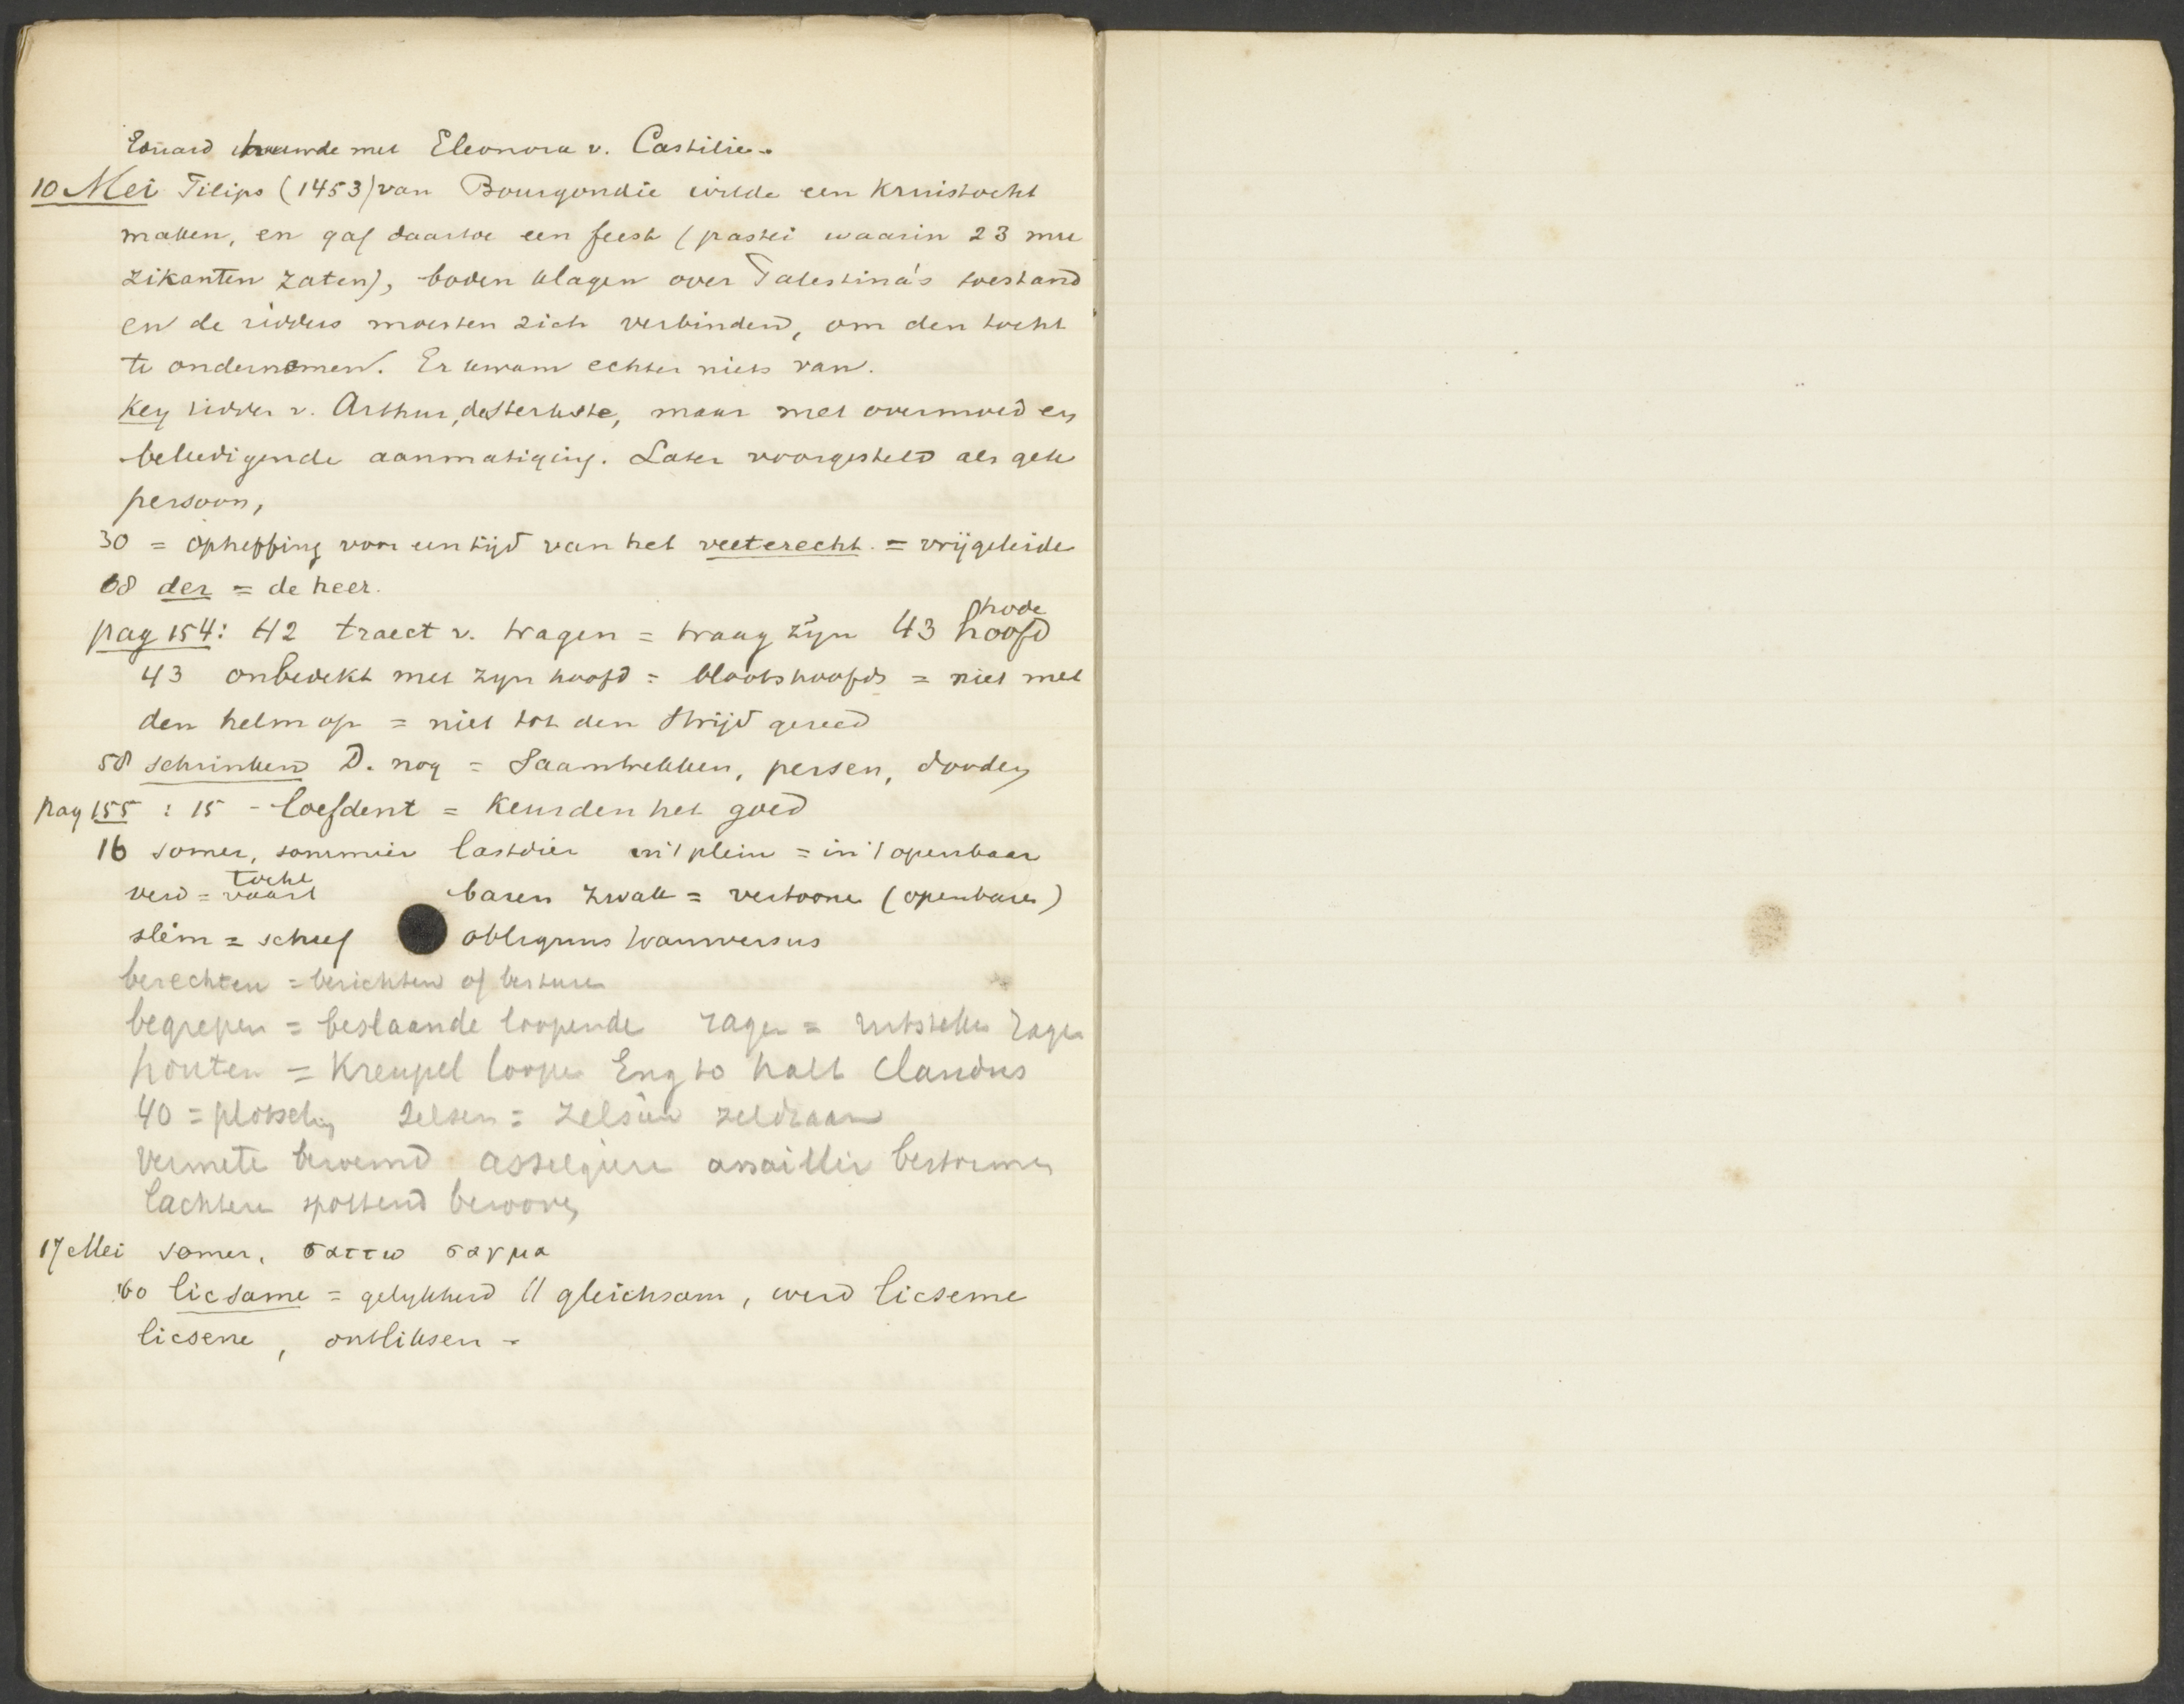 Eduard trouwde met Eleonora v. Castilie.
10 Mei Filips (1453) van Bourgondie wilde een kruistocht
maken, en gaf daartoe een feest (pastei waarin 23 mu
zikanten zaten), boden klagen over Palestina's toestand
en de ridders moesten zich verbinden, om den tocht
te ondernemen. Er kwam echter niets van.
Key ridder v. Arthur, de sterkste, maar met overmoed en
beleedigende aanmatiging. Later voorgesteld als gek
persoon,
30 = opheffing voor een tijd van het veeterecht. = vrijgeleide
68 der = de heer.
pag 154: 42 traect v. tragen = traag zijn 43 hoofd
hode
43 onbedekt met zyn hoofd = blootshoofds = niet met
den helm op = niet tot den strijd gereed
58 schrinken D. nog = Saamtrekken, persen, dooden
pag 155 : 15 - loefdent = keurden het goed
16 somer, sommier lastdier in 't plein = in 't openbaar
verd = vaart baren zwak = vertoonen (openbaren)
tocht
slem = scheef obliquus transversus
berechten = berichten of besturen
begrepen = beslaande loopende
houten = Kreupel loopen Eng to halt Claudus
40 = plotseling selsen = zelsien zeldzaam
Vermete beroemd asselgiere assaillir bestormen
lachtere spottend
17 Mei somer. σαττω σαγμα
60 licsame = gelykheid // gleichsam, werd licseme
licsene, ontliksen -